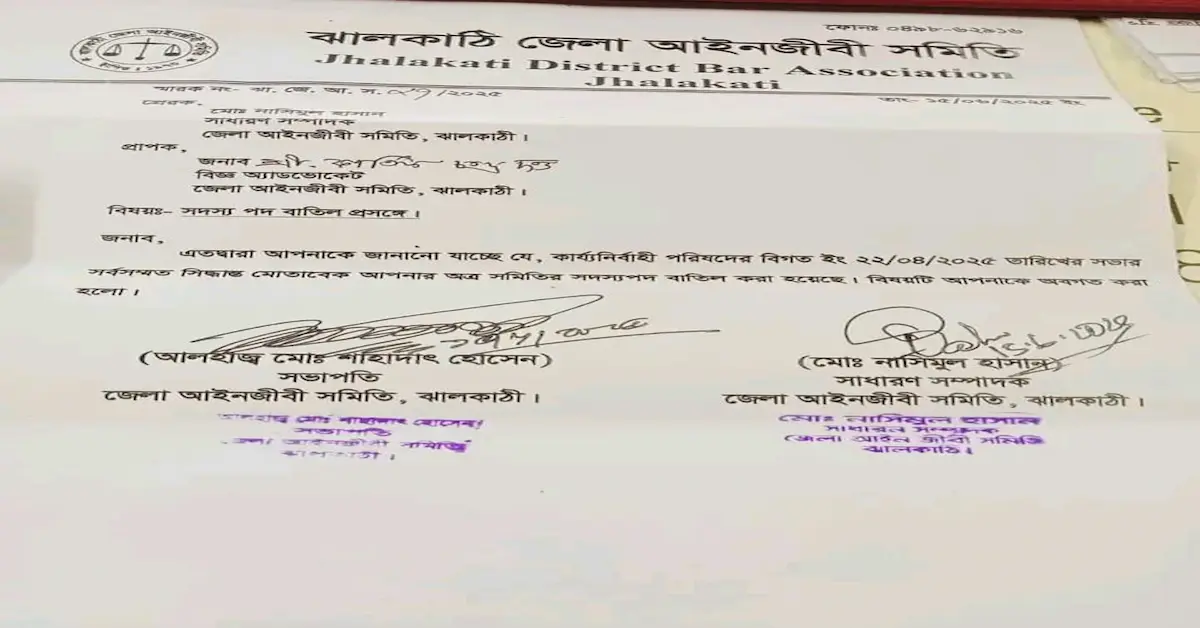 ফোনঃ ০৪৯৮-৬২৯১৬
ঝালকাঠি জেলা আইনজীবী সমিতি
Jhalakati District Bar Association
Jhalakati
স্মারক নং- ঝা. জে. আ. স. /২০২৫
তাং- ১৫/০৬/২০২৫ ইং
প্রেরক,
মোঃ নাসিমুল হাসান
সাধারণ সম্পাদক
জেলা আইনজীবী সমিতি, ঝালকাঠী।
প্রাপক,
জনাব শ্রী. কার্তিক চন্দ্র দত্ত
বিজ্ঞ অ্যাডভোকেট
জেলা আইনজীবী সমিতি, ঝালকাঠী।
বিষয়ঃ- সদস্য পদ বাতিল প্রসঙ্গে।
জনাব,
এতদ্বারা আপনাকে জানানো যাচ্ছে যে, কার্য্যনির্বাহী পরিষদের বিগত ইং ২২/০৪/২০২৫ তারিখের সভার
সর্বসম্মত সিদ্ধান্ত মোতাবেক আপনার অত্র সমিতির সদস্যপদ বাতিল করা হয়েছে। বিষয়টি আপনাকে অবগত করা
হলো।
(আলহাজ্ব মোঃ শাহাদাৎ হোসেন)
সভাপতি
জেলা আইনজীবী সমিতি, ঝালকাঠী।
আলহাজ্ব মোঃ শাহাদাৎ হোসেন
সভাপতি
জেলা আইনজীবী সমিতি
ঝালকাঠী।
15.6.2025
(মোঃ নাসিমুল হাসান)
সাধারণ সম্পাদক
জেলা আইনজীবী সমিতি, ঝালকাঠী।
মোঃ নাসিমুল হাসান
সাধারন সম্পাদক
জেলা আইন জীবী সমিতি
ঝালকাঠি।